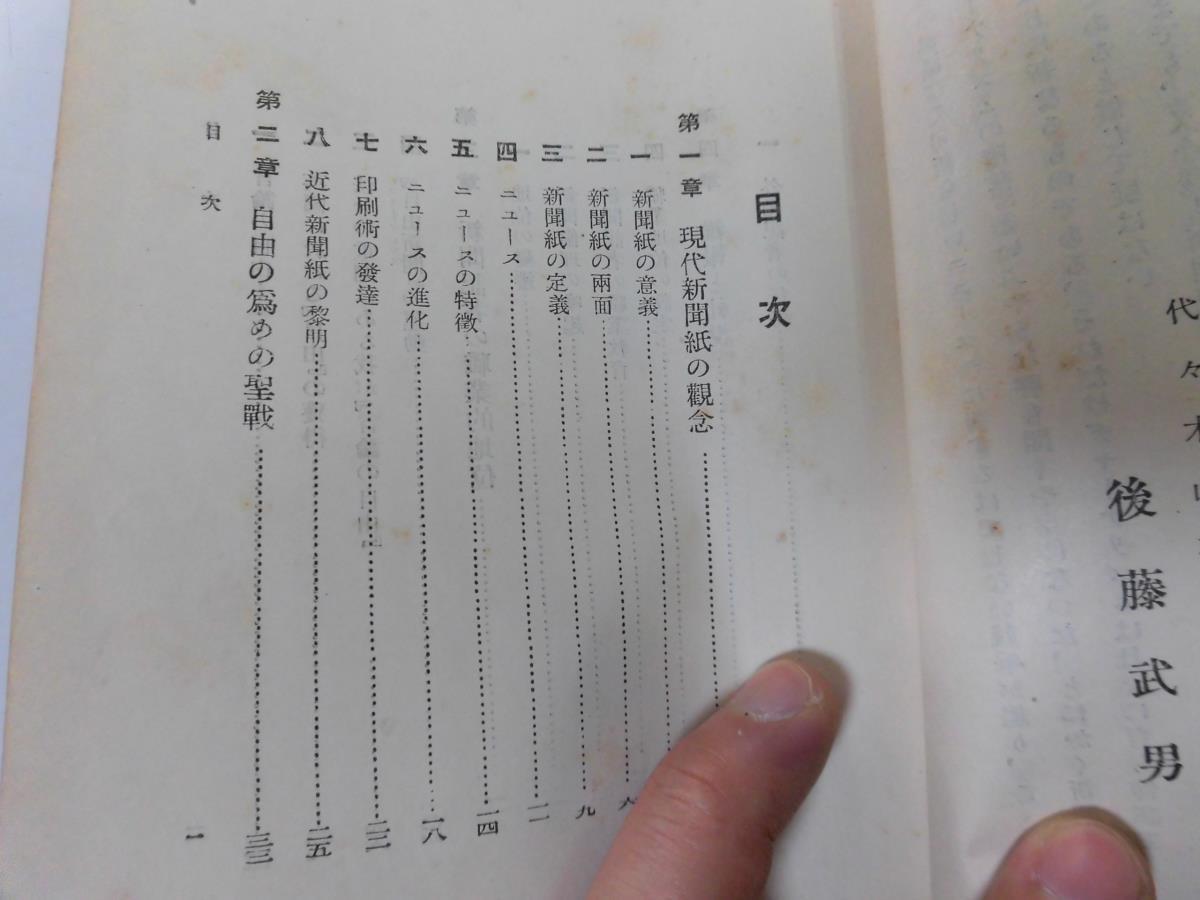 代々木
後藤武男
目次
第一章 現代新聞紙の觀念
一 新聞紙の意義
二 新聞紙の兩面
三 新聞紙の定義 九
四 ニュース 一一
五 ニュースの特徴 一四
六 ニュースの進化 一八
七 印刷術の發達
八 近代新聞紙の黎明 二五
第二章 自由の爲めの聖戰
目次 一